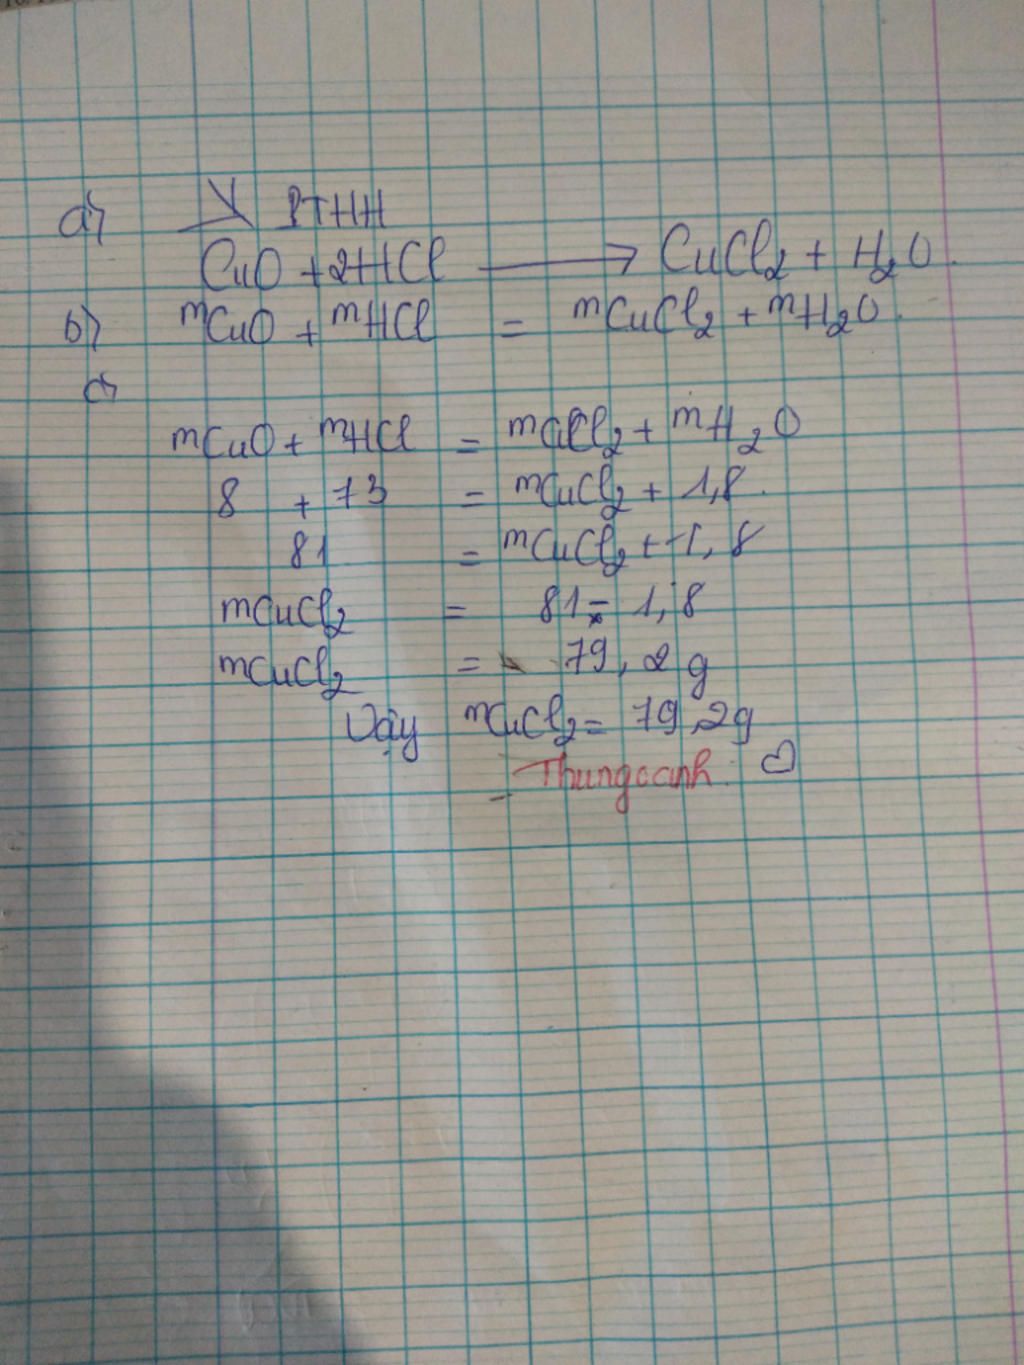 a) PTHH
CuO + 2HCl → CuCl2 + H2O.
b) mCuO + mHCl = mCuCl2 + mH2O.
c)
mCuO + mHCl = mCuCl2 + mH2O
8 + 73 = mCuCl2 + 1,8.
81 = mCuCl2 + 1,8
mCuCl2 = 81 - 1,8
mCuCl2 = 79,2 g
Vậy mCuCl2 = 79,2g